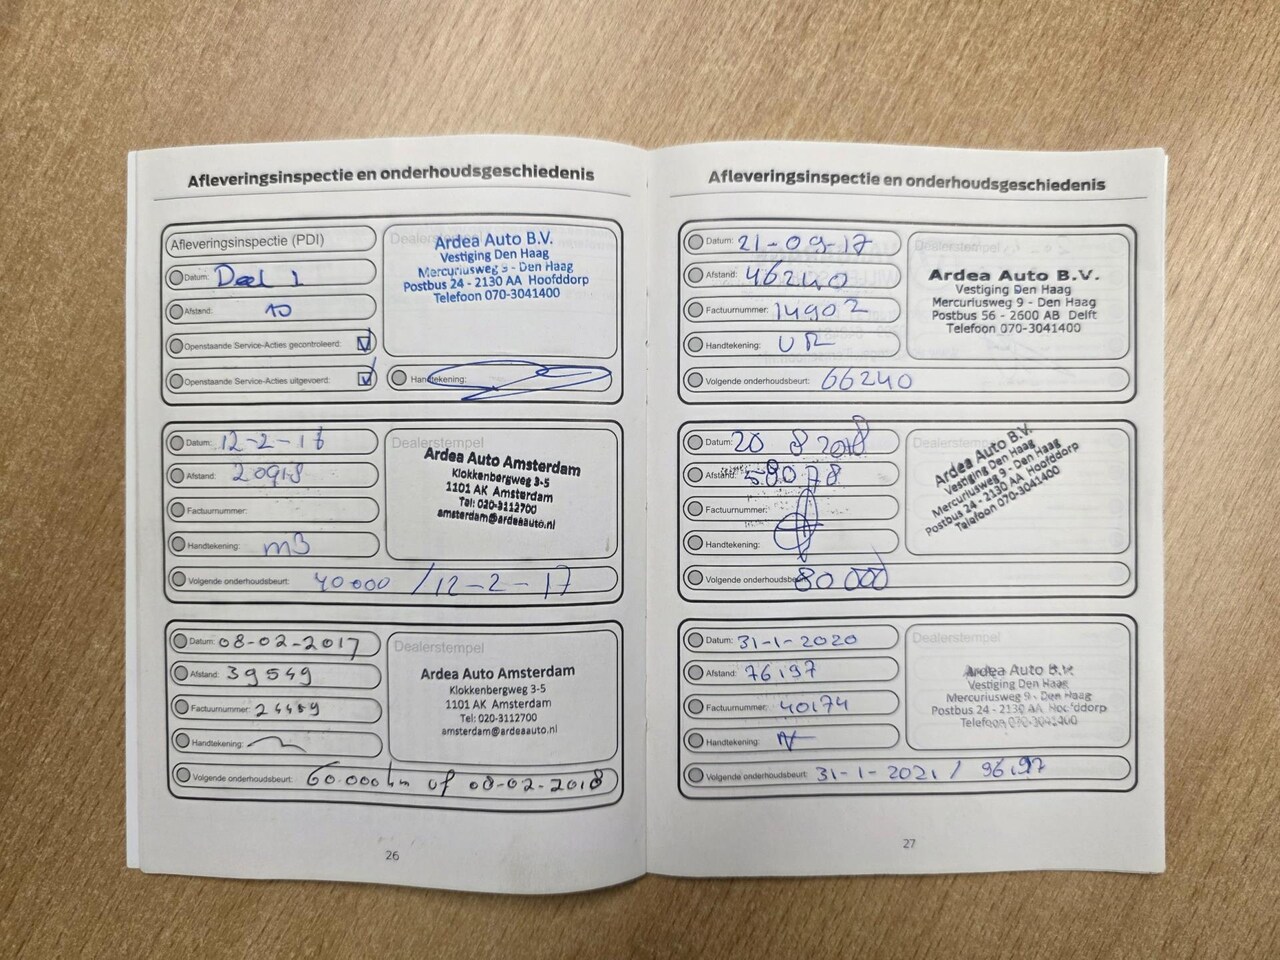 Afleveringsinspectie en onderhoudsgeschiedenis
Afleveringsinspectie (PDI)
Datum: Deel 1
Afstand: 10
Openstaande Service-Acties gecontroleerd:
Openstaande Service-Acties uitgevoerd:
Dealerstempel
Ardea Auto B.V.
Vestiging Den Haag
Mercuriusweg 9 - Den Haag
Postbus 24 - 2130 AA Hoofddorp
Telefoon 070-3041400
Handtekening:
Datum: 12-2-16
Afstand: 20918
Factuurnummer:
Handtekening: mB
Dealerstempel
Ardea Auto Amsterdam
Klokkenbergweg 3-5
1101 AK Amsterdam
Tel: 020-3112700
amsterdam@ardeaauto.nl
Volgende onderhoudsbeurt: 40000 / 12-2-17
Datum: 08-02-2017
Afstand: 39549
Factuurnummer: 24459
Handtekening:
Dealerstempel
Ardea Auto Amsterdam
Klokkenbergweg 3-5
1101 AK Amsterdam
Tel: 020-3112700
amsterdam@ardeaauto.nl
Volgende onderhoudsbeurt: 60.000 km of 08-02-2018
26
Afleveringsinspectie en onderhoudsgeschiedenis
Datum: 21-09-17
Afstand: 46240
Factuurnummer: 14902
Handtekening:
Dealerstempel
Ardea Auto B.V.
Vestiging Den Haag
Mercuriusweg 9 - Den Haag
Postbus 56 - 2600 AB Delft
Telefoon 070-3041400
Volgende onderhoudsbeurt: 66240
Datum: 20 8 2018
Afstand: 58078
Factuurnummer:
Handtekening:
Dealerstempel
Ardea Auto B.V.
Vestiging Den Haag
Mercuriusweg 9 - Den Haag
Postbus 24 - 2130 AA Hoofddorp
Telefoon 070-3041400
Volgende onderhoudsbeurt: 80 000
Datum: 31-1-2020
Afstand: 76197
Factuurnummer: 40174
Handtekening:
Dealerstempel
Ardea Auto B.V.
Vestiging Den Haag
Mercuriusweg 9 - Den Haag
Postbus 24 - 2130 AA Hoofddorp
Telefoon 070-3041400
Volgende onderhoudsbeurt: 31-1-2021 / 96197
27